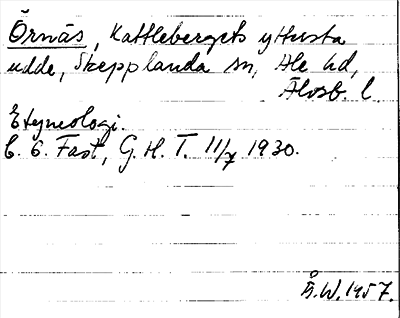 Örnäs, Kattlebergets yttersta
udde, Skepplanda sn, Ale hd,
Älvsb. l.
Etymologi.
C. G. Fast, G. H. T. 11/7 1930.
Å.W. 1957.